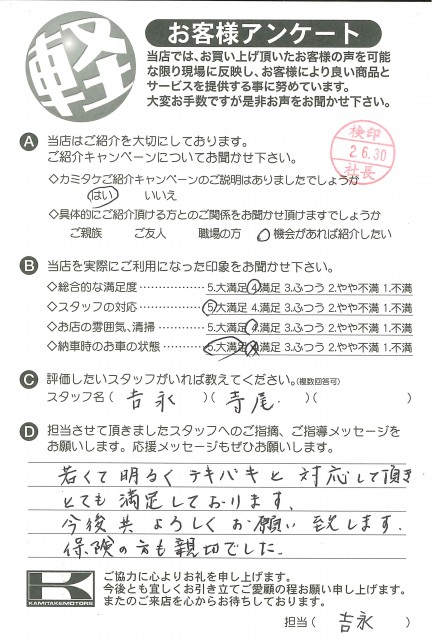 軽
お客様アンケート
当店では、お買い上げ頂いたお客様の声を可能
な限り現場に反映し、お客様により良い商品と
サービスを提供する事に努めています。
大変お手数ですが是非お声をお聞かせ下さい。
検印
2 6.30
社長
A 当店はご紹介を大切にしております。
ご紹介キャンペーンについてお聞かせ下さい。
◇カミタケご紹介キャンペーンのご説明はありましたでしょうか
はい いいえ
◇具体的にご紹介頂ける方とのご関係をお聞かせ頂けますでしょうか
ご親族 ご友人 職場の方 機会があれば紹介したい
B 当店を実際にご利用になった印象をお聞かせ下さい。
◇総合的な満足度 5.大満足 4.満足 3.ふつう 2.やや不満 1.不満
◇スタッフの対応 5.大満足 4.満足 3.ふつう 2.やや不満 1.不満
◇お店の雰囲気、清掃 5.大満足 4.満足 3.ふつう 2.やや不満 1.不満
◇納車時のお車の状態 5.大満足 4.満足 3.ふつう 2.やや不満 1.不満
C 評価したいスタッフがいれば教えてください。(複数回答可)
スタッフ名( 吉永 )( 寺尾 )( )
D 担当させて頂きましたスタッフへのご指摘、ご指導メッセージを
お願いします。応援メッセージもぜひお願いします。
若くて明るくテキパキと対応して頂き
とても満足しております。
今後共よろしくお願い致します。
保険の方も親切でした。
K
KAMITAKEMOTORS
ご協力に心よりお礼を申し上げます。
今後とも宜しくお引き立てご愛顧の程お願い申し上げます。
またのご来店を心からお待ちしております。
担当( 吉永 )